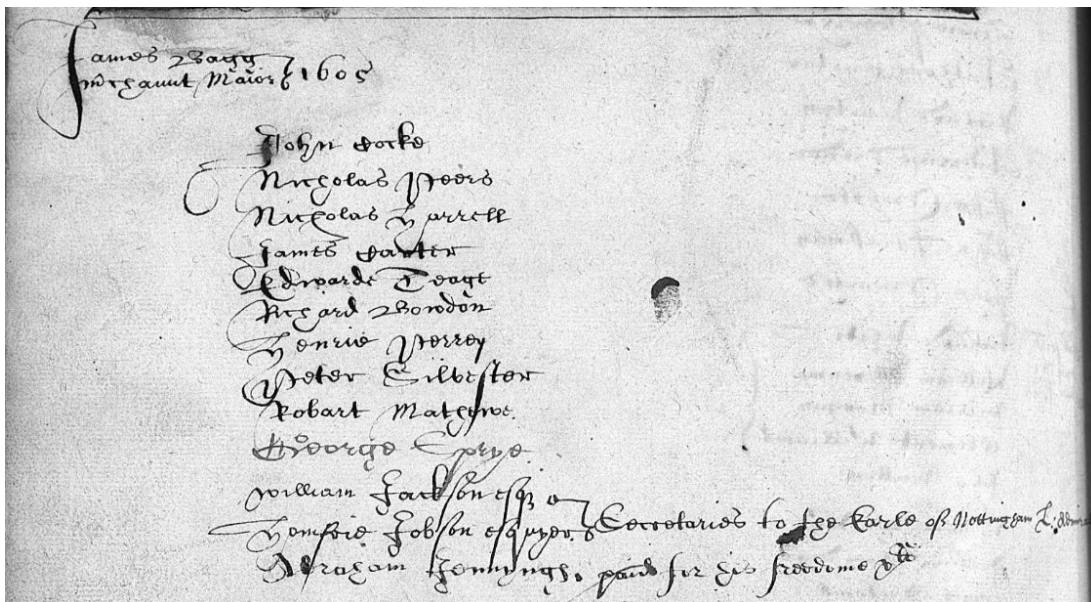 James Bagg
mchaunt Maior 1605
John Cocke
Nicholas Peers
Nicholas Harrell
James Carter
Edwarde Teage
Richard Bowdon
Henrie Perrey
Peter Silvester
Robart Mathewe
George Sprye
William Jackson esq
Homfrie Jobson esquyer Secretaries to the Earle of Nottingham L:
Abraham Jennyngs. paid for his freedome